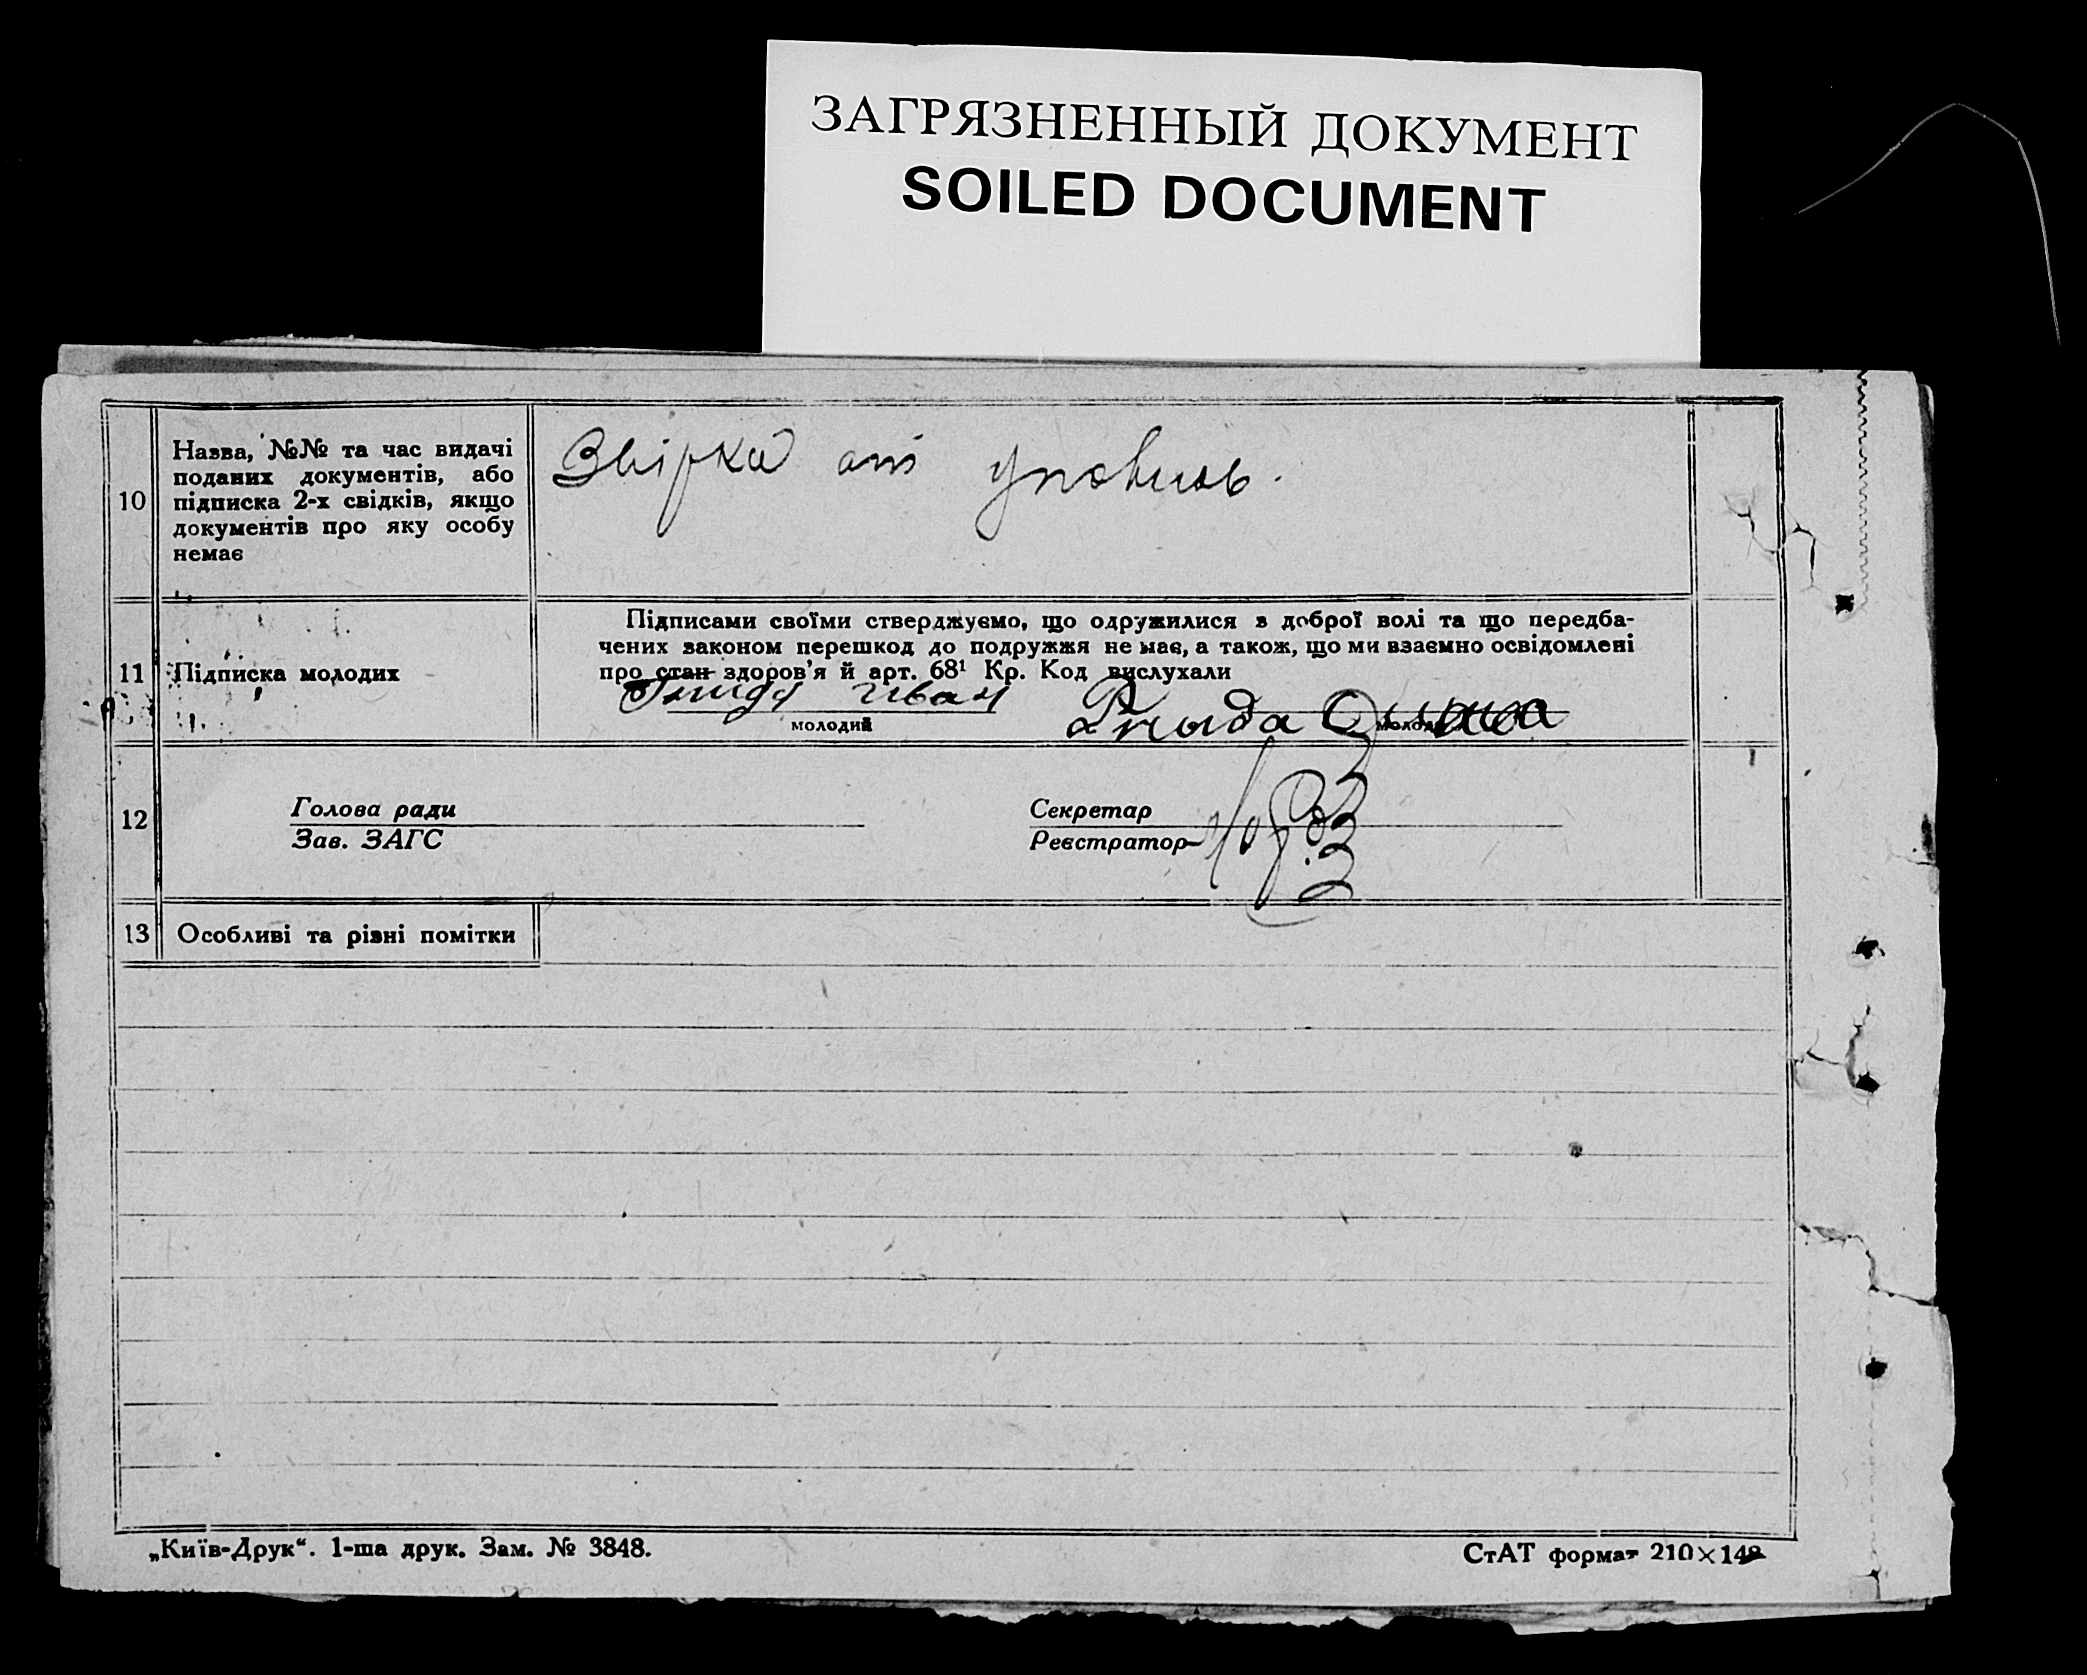 ЗАГРЯЗНЕННЫЙ ДОКУМЕНТ
SOILED DOCUMENT
10
Назва, №№ та час видачі
поданих документів, або
підписка 2-х свідків, якщо
документів про яку особу
немає
11
Підписка молодих
Підписами своїми стверджуємо, що одружилися з доброї волі та що передба-
чених законом перешкод до подружжя не має, а також, що ми взаємно освідомлені
про стан здоров'я й арт. 68¹ Кр. Код вислухали
Иван
молодий
12
Голова ради
Зав. ЗАГС
Секретар
Реєстратор
13
Особливі та різні помітки
„Київ-Друк“. 1-ша друк. Зам. № 3848.
СтАТ формат 210×148